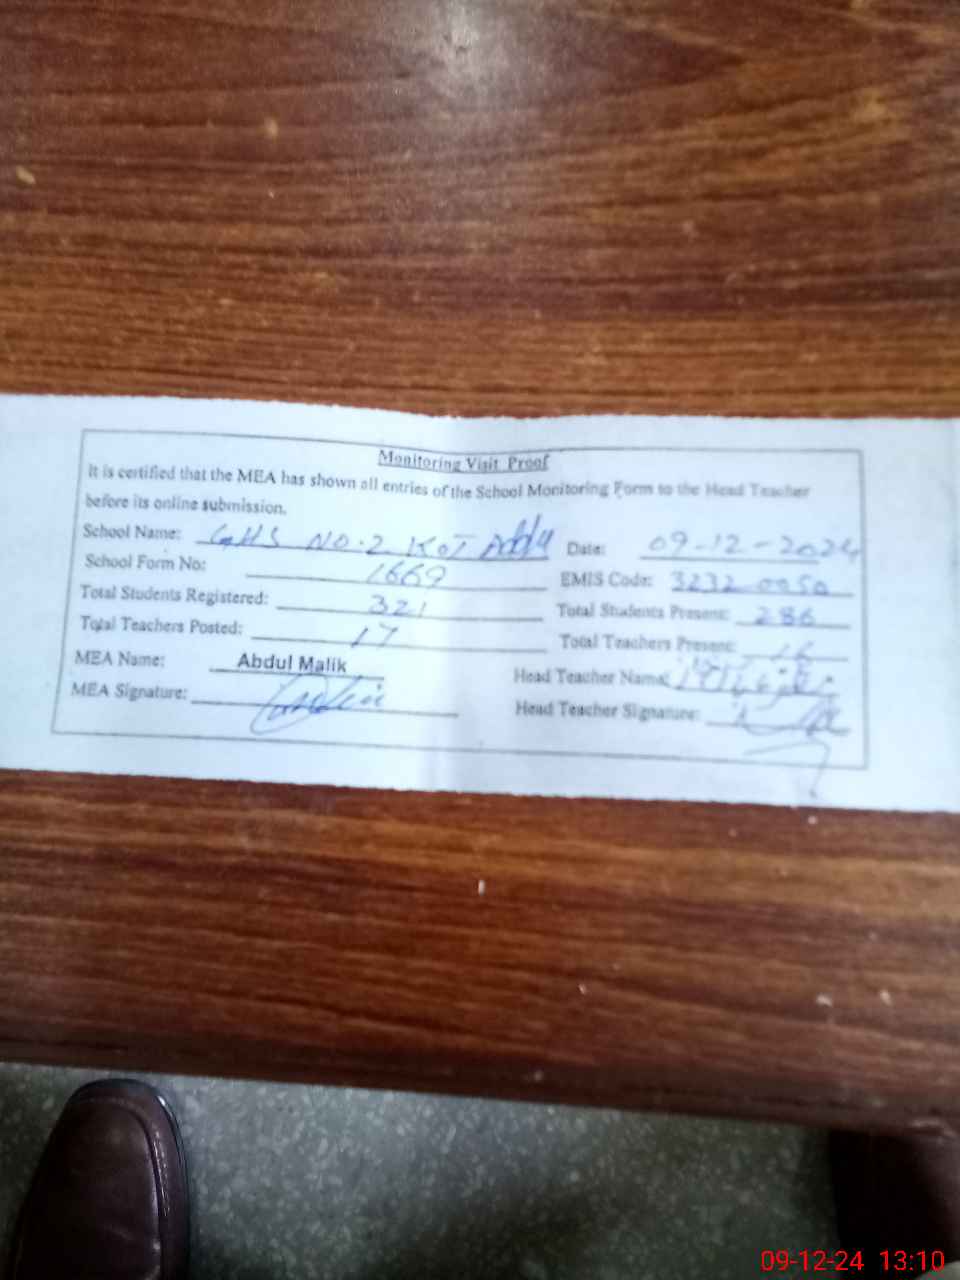 Monitoring Visit Proof
It is certified that the MEA has shown all entries of the School Monitoring Form to the Head Teacher
before its online submission.
School Name: GHS NO.2 KOT Addu Date: 09-12-2024
School Form No: 1669 EMIS Code: 32320050
Total Students Registered: 321 Total Students Present: 286
Total Teachers Posted: 17 Total Teachers Present:
MEA Name: Abdul Malik Head Teacher Name:
MEA Signature: Head Teacher Signature:
09-12-24 13:10